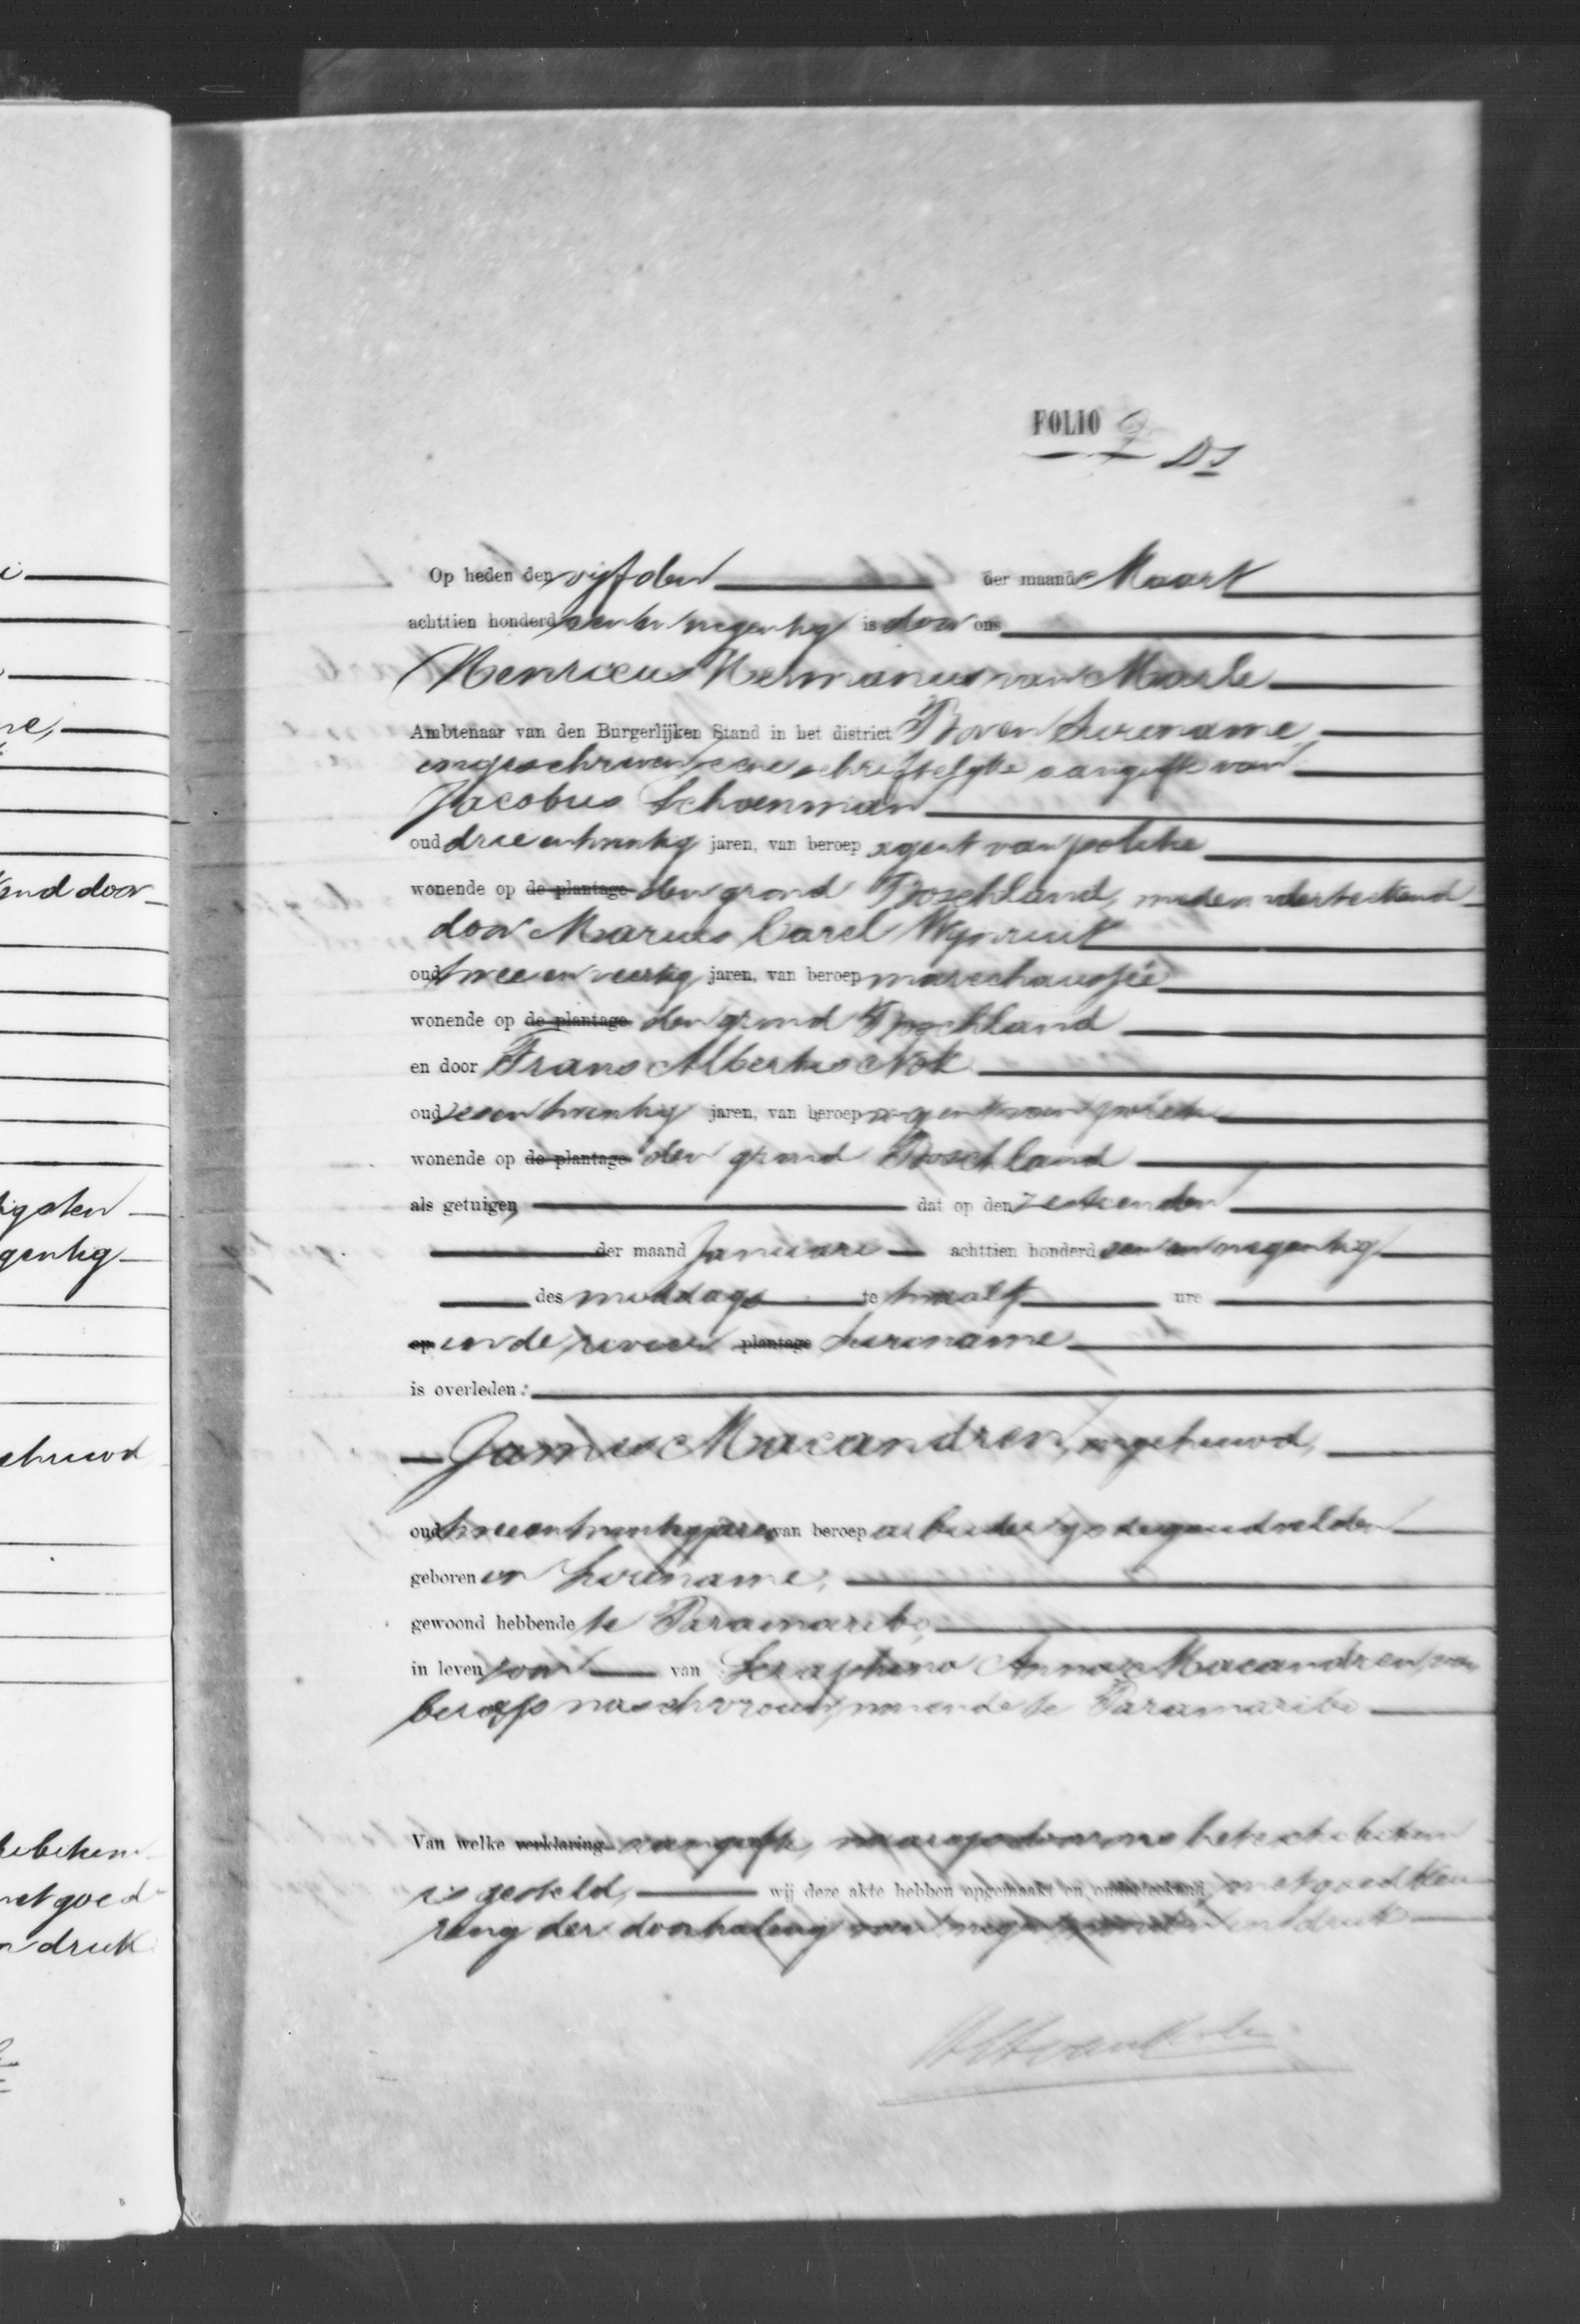 ne,
end door
igsten
gentig
gehuwd
betekenen
met goed
n druk
FOLIO 2
Op heden den vijfden der maand Maart
achttien honderd een en negentig is door ons
Henricus Hermanus van Marle
Ambtenaar van den Burgerlijken Stand in het district Boven Suriname,
ingeschreven eene schriftelijke aangifte van
Jacobus Schoenman
oud drie en twintig jaren, van beroep agent van politie
wonende op de plantage den grond Boschland, mede onderteekend
door Marius Carel Wijnruit
oud twee en veertig jaren, van beroep marechaussée
wonende op de plantage den grond Boschland
en door Frans Albertus Nok
oud zes en twintig jaren, van beroep agent van politie
wonende op de plantage den grond Boschland
als getuigen, dat op den zestienden
der maand Januari achttien honderd een en negentig
des middags te twaalf ure
op in de rivier plantage Suriname
is overleden:
James Macandrew, ongehuwd,
oud twee en twintig jaren van beroep arbeider op de goudvelden
geboren in Suriname,
gewoond hebbende te Paramaribo,
in leven zoon van Seraphina Anna Macandrew, van
beroep waschvrouw, wonende te Paramaribo
Van welke verklaring aangifte, waarop door ons het
is gesteld, wij deze akte hebben opgemaakt en onderteekend, met goedkeu
ring der doorhaling van negen in druk